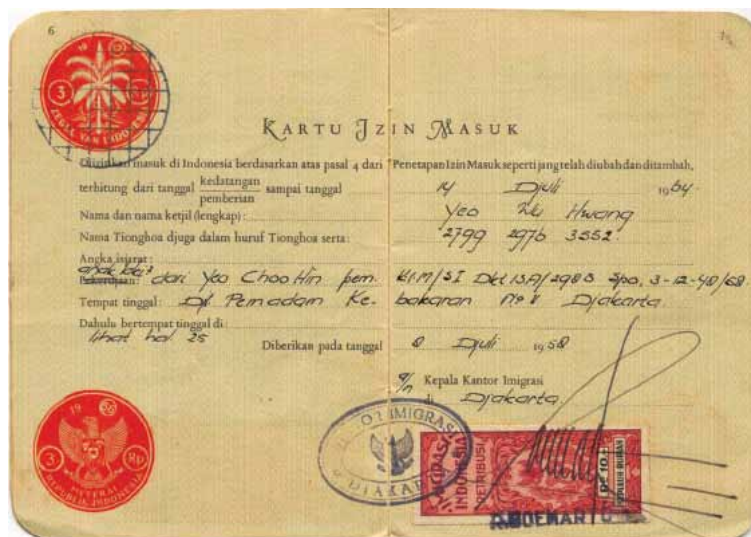 6
KARTU IZIN MASUK
Diizinkan masuk di Indonesia berdasarkan atas pasal 4 dari "Penetapan Izin Masuk seperti jang telah diubah dan ditambah,
terhitung dari tanggal kedatangan/pemberian sampai tanggal 14 Djuli 1964
Nama dan nama ketjil (lengkap): Yeo Wu Hwang
Nama Tionghoa djuga dalam huruf Tionghoa serta: 2799 2976 3552.
Angka isjarat:
Pekerdjaan: anak laki² dari Yeo Choo Hin pem. KIM/SI Dkt
Tempat tinggal: Pemadam Kebakaran No Djakarta
Dahulu bertempat tinggal di:
lihat hal 25
Diberikan pada tanggal 8 Djuli 1958
a/n Kepala Kantor Imigrasi
di Djakarta.
3
3 Rp
REPUBLIK INDONESIA
IMIGRASI
DJAKARTA
IMIGRASI
INDONESIA
RETRIBUSI